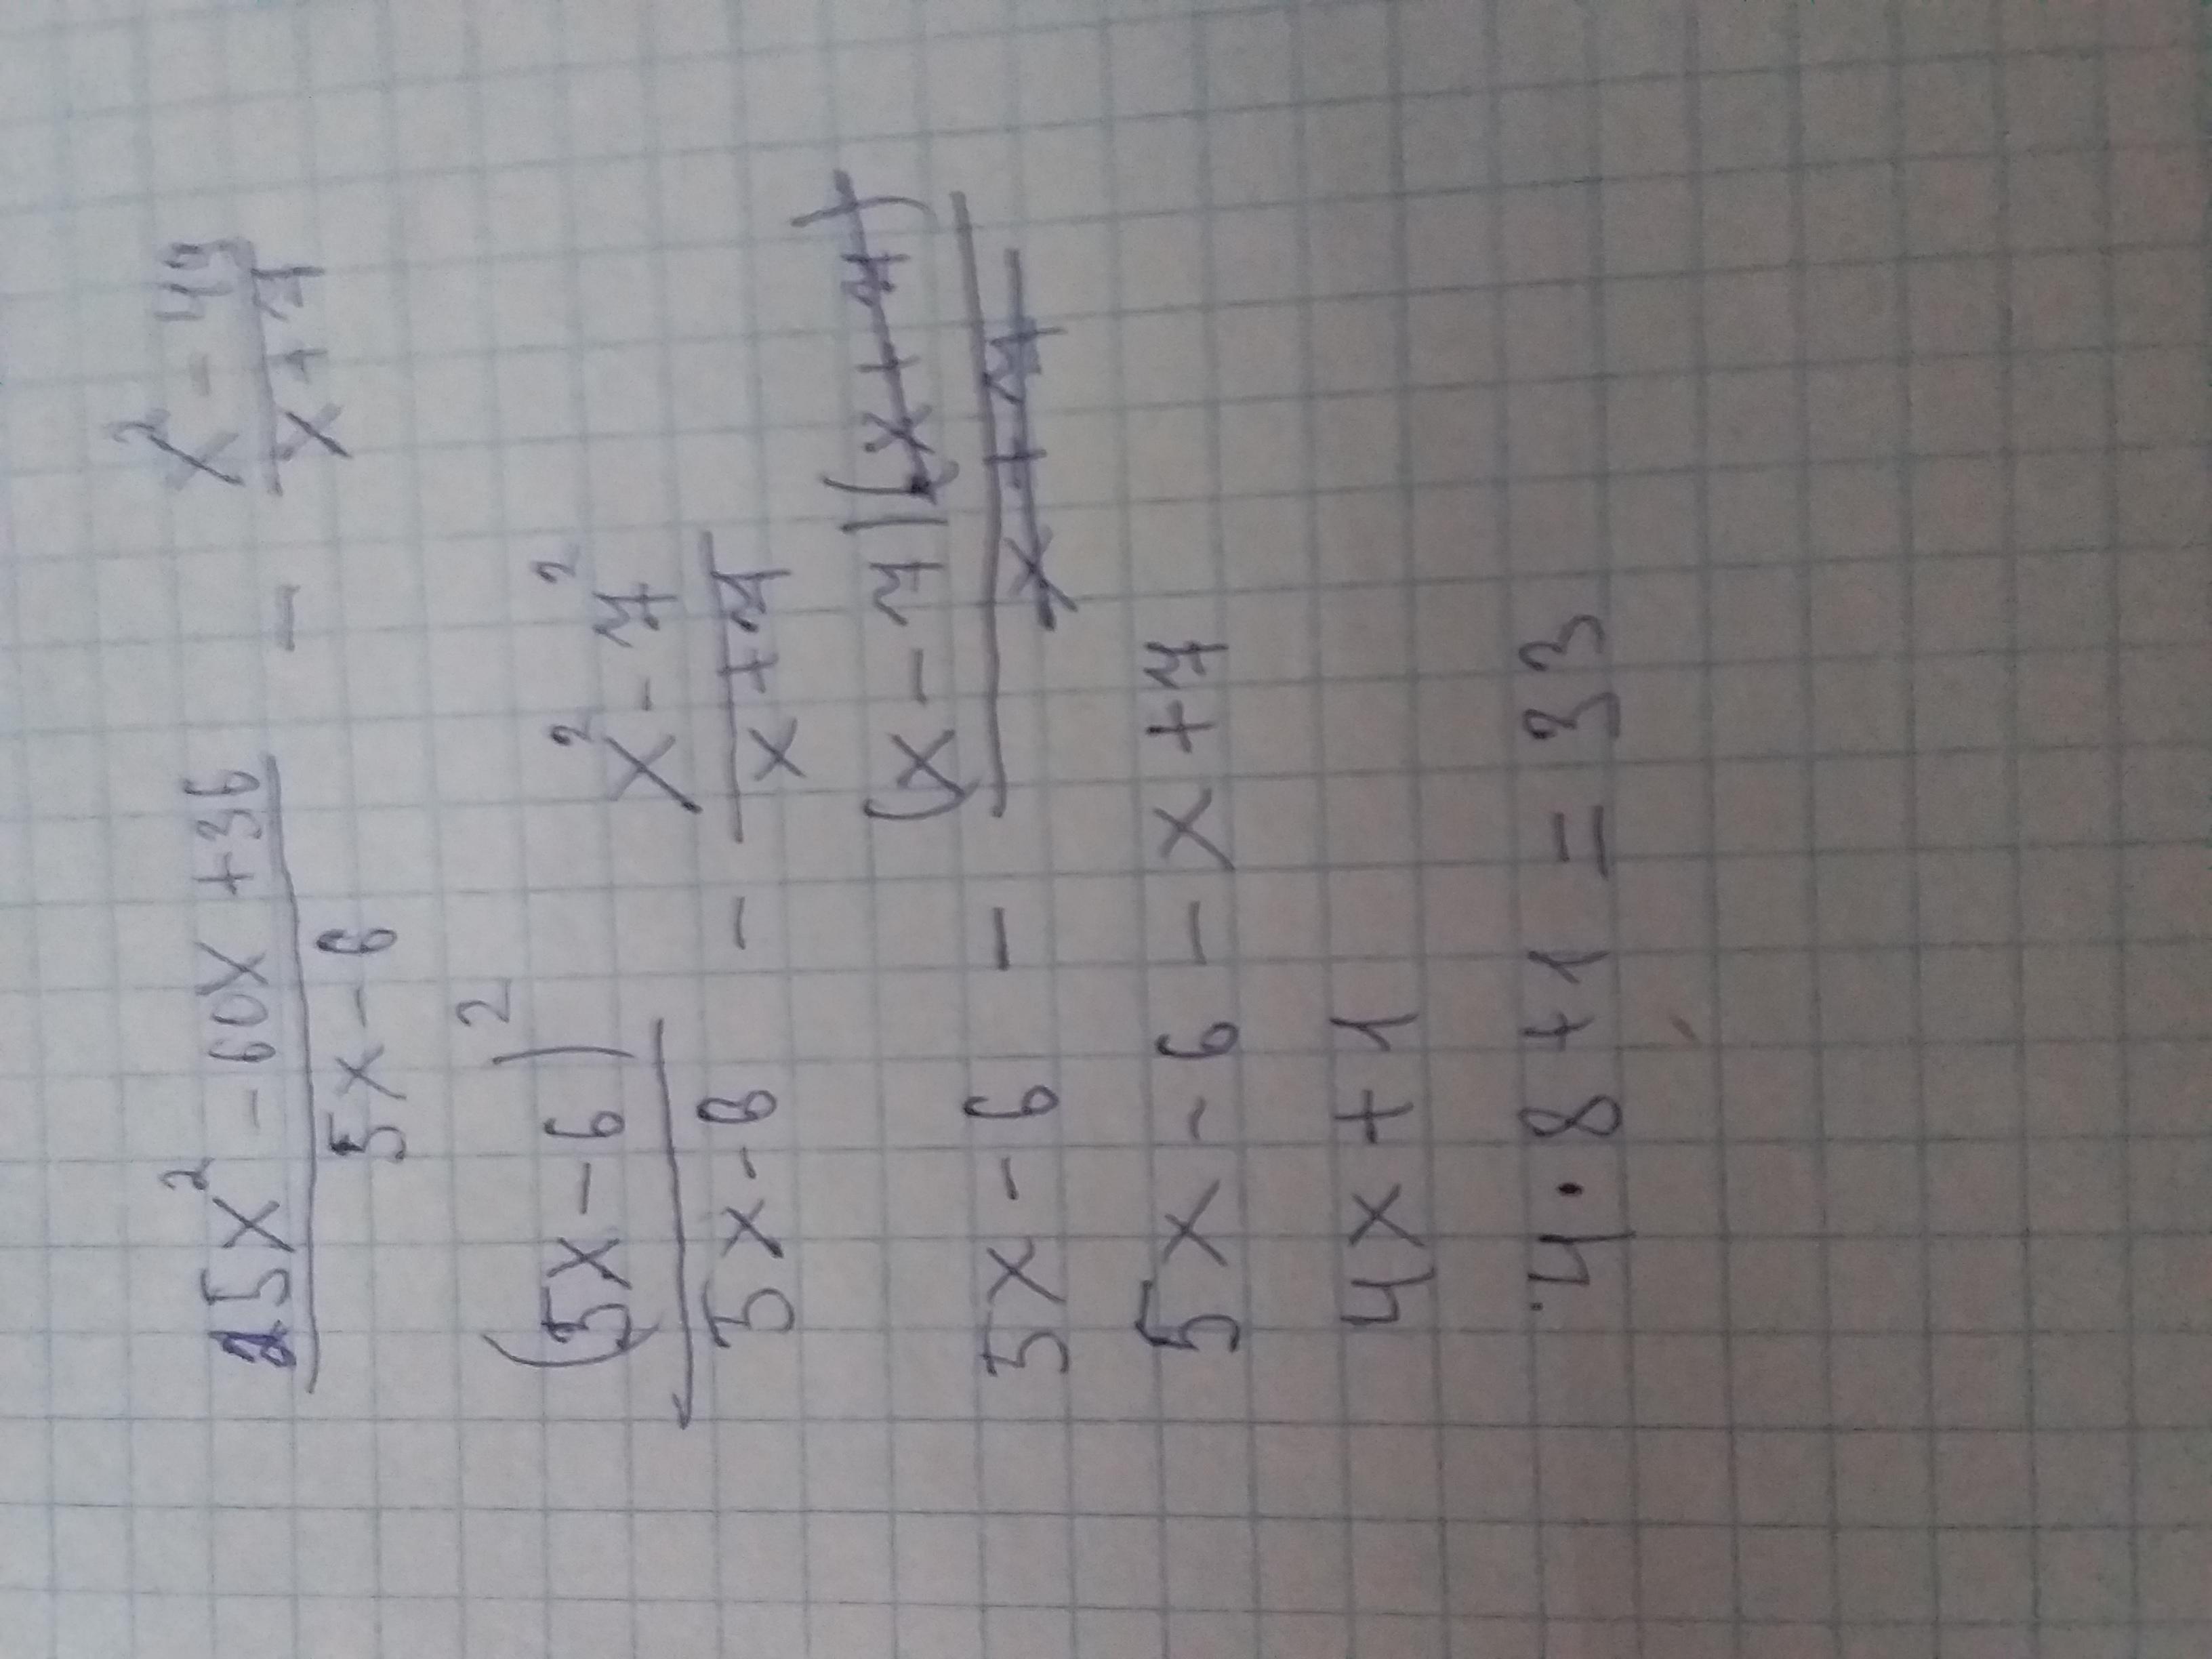 25x² - 60x + 36 / 5x - 6 - x² - 49 / x + 7
(5x - 6)² / 5x - 6 - x² - 7² / x + 7
5x - 6 - (x - 7)(x + 7) / x + 7
5x - 6 - x + 7
4x + 1
4 · 8 + 1 = 33